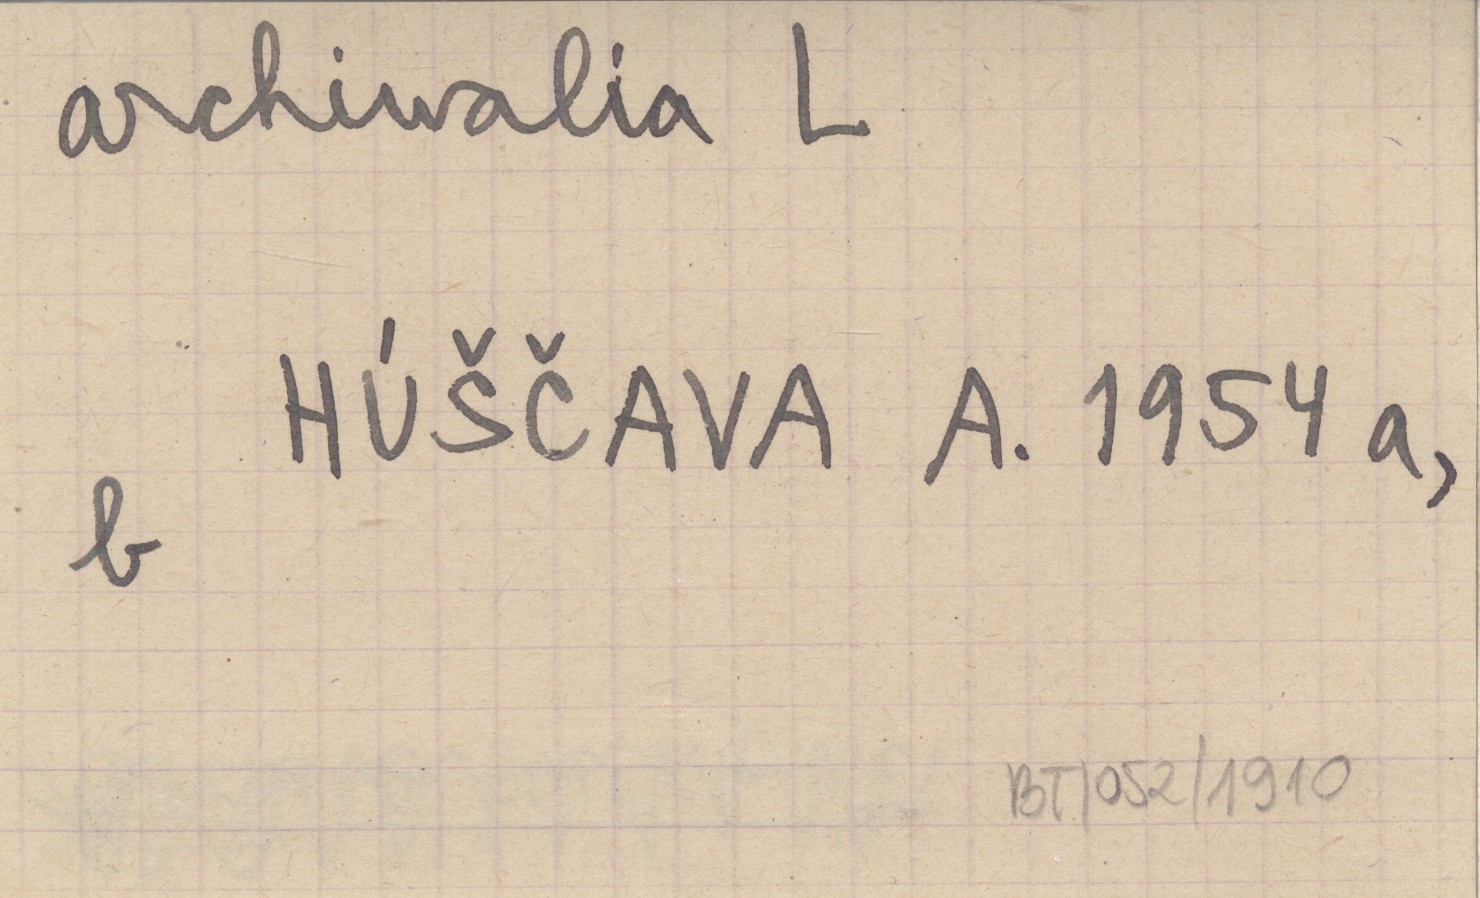 archiwalia L
HÚŠČAVA A. 1954 a,
b
BT/052/1910